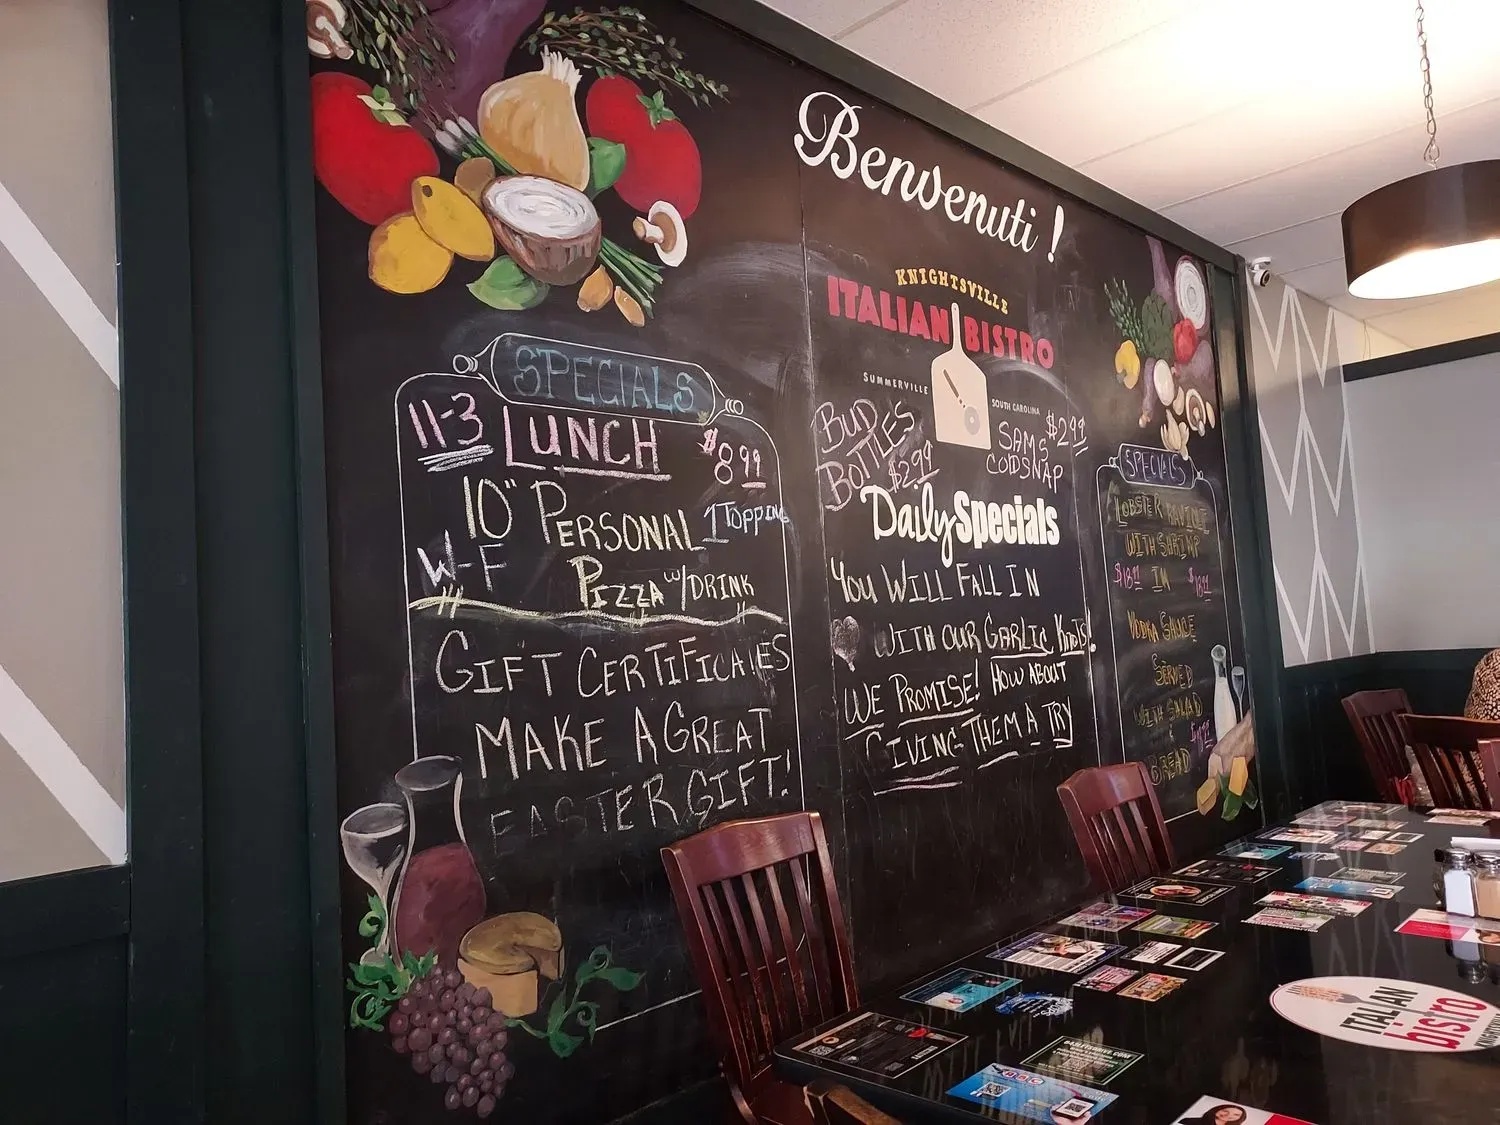 Benvenuti !
KNIGHTSVILLE
ITALIAN BISTRO
SUMMERVILLE SOUTH CAROLINA
SPECIALS
11-3 LUNCH $8.99
10" PERSONAL 1 TOPPING
W-F PIZZA W/DRINK
GIFT CERTIFICATES
MAKE A GREAT
EASTER GIFT!
BUD
BOTTLES
$2.99
SAMS $2.99
COLDSNAP
Daily Specials
YOU WILL FALL IN
WITH OUR GARLIC KNOTS!
WE PROMISE! HOW ABOUT
GIVING THEM A TRY
SPECIALS
LOBSTER RAVIOLI
WITH SHRIMP
IN
VODKA SAUCE
SERVED
WITH SALAD
&
BREAD
ITALIAN
bistro